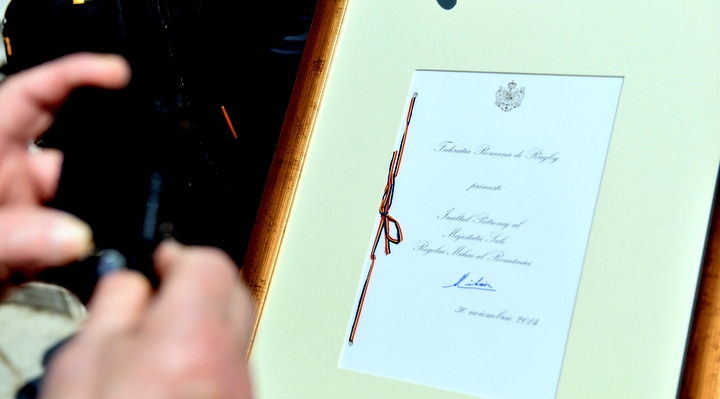 Federatia Romana de Rugby
primeste
Inaltul Patronaj al
Majestatii Sale
Regelui Mihai al Romaniei
Mihai
30 noiembrie 2014